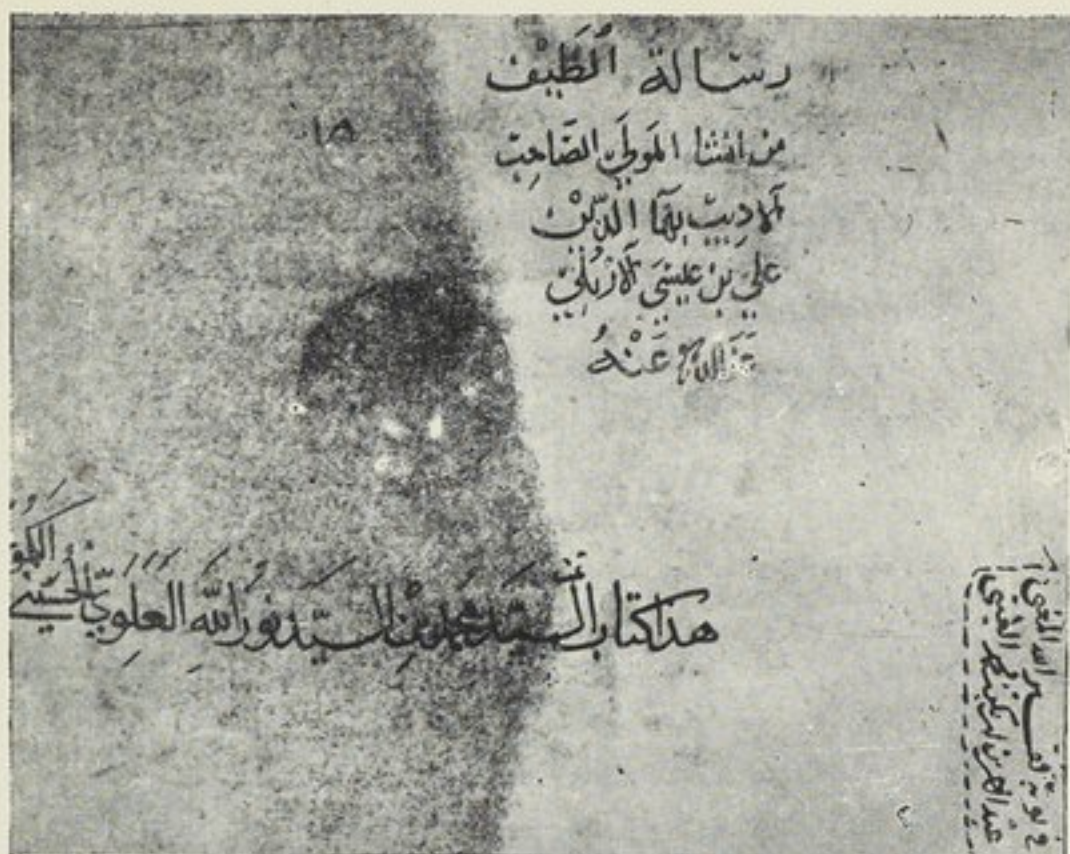 رسالة الطَّيْف
من انشا المولىَ الصَّاحِب
الادِيب بهَا الدّين
علي بن عيسَى الارْبلي
عَفَا اللهُ عَنْهُ
١٥
هذا كتاب السيّد محمد بن السيّد نور اللهِ العَلَوِيّ الحُسَيني
في نوبة فقير الله الغني